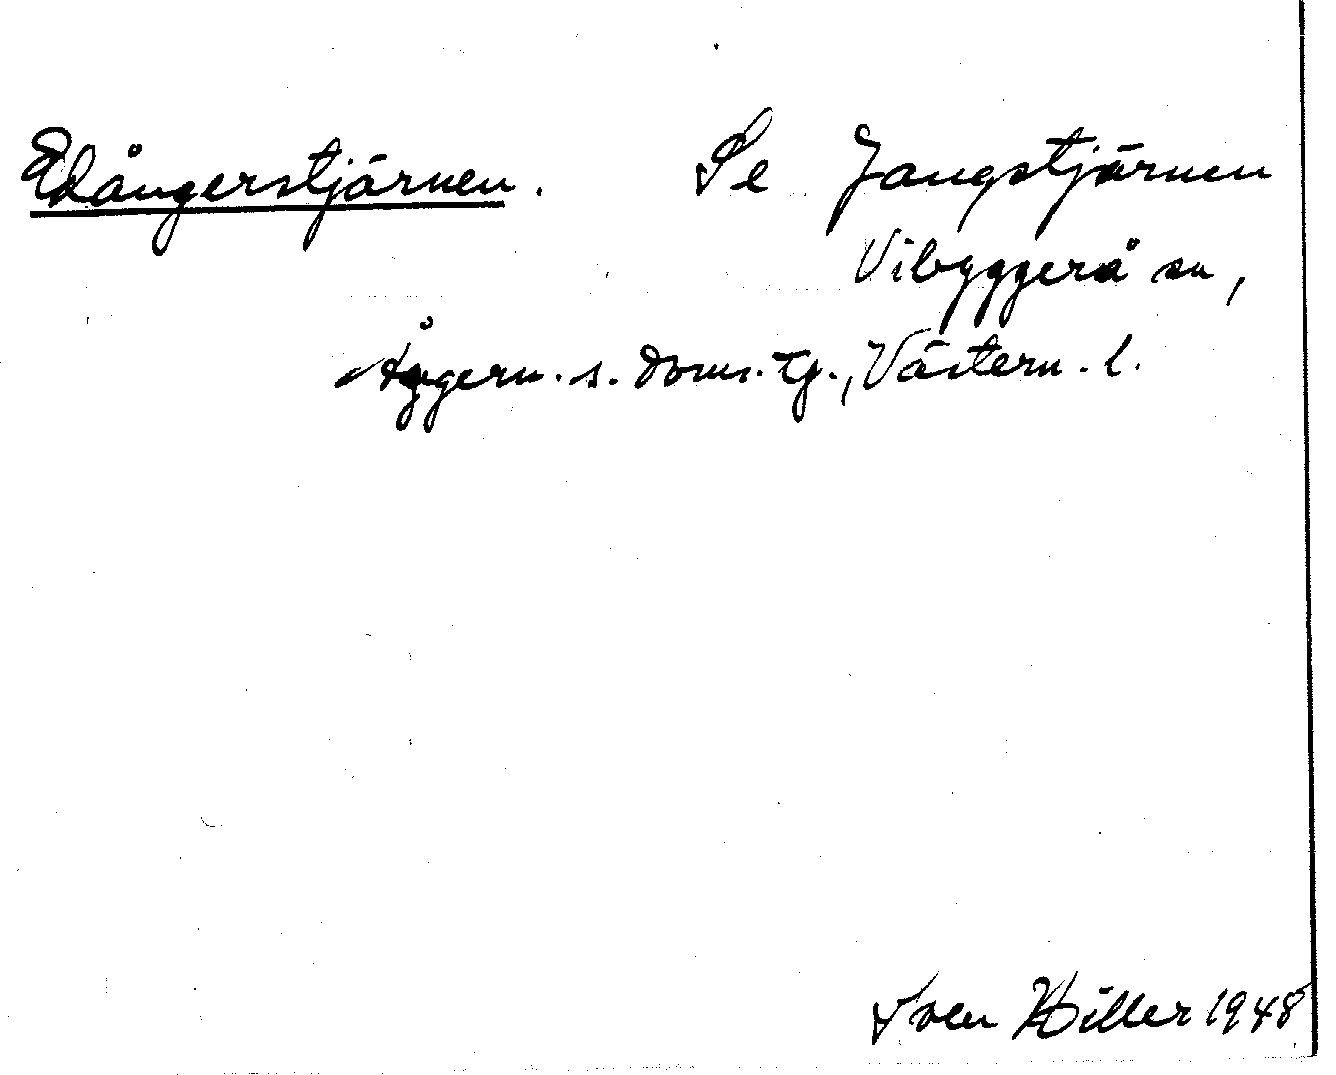 Edångerstjärnen. Se Jangstjärnen
Vibyggerå sn,
Ångerm. s. doms. tg., Västern. l.
Sven Hiller 1948